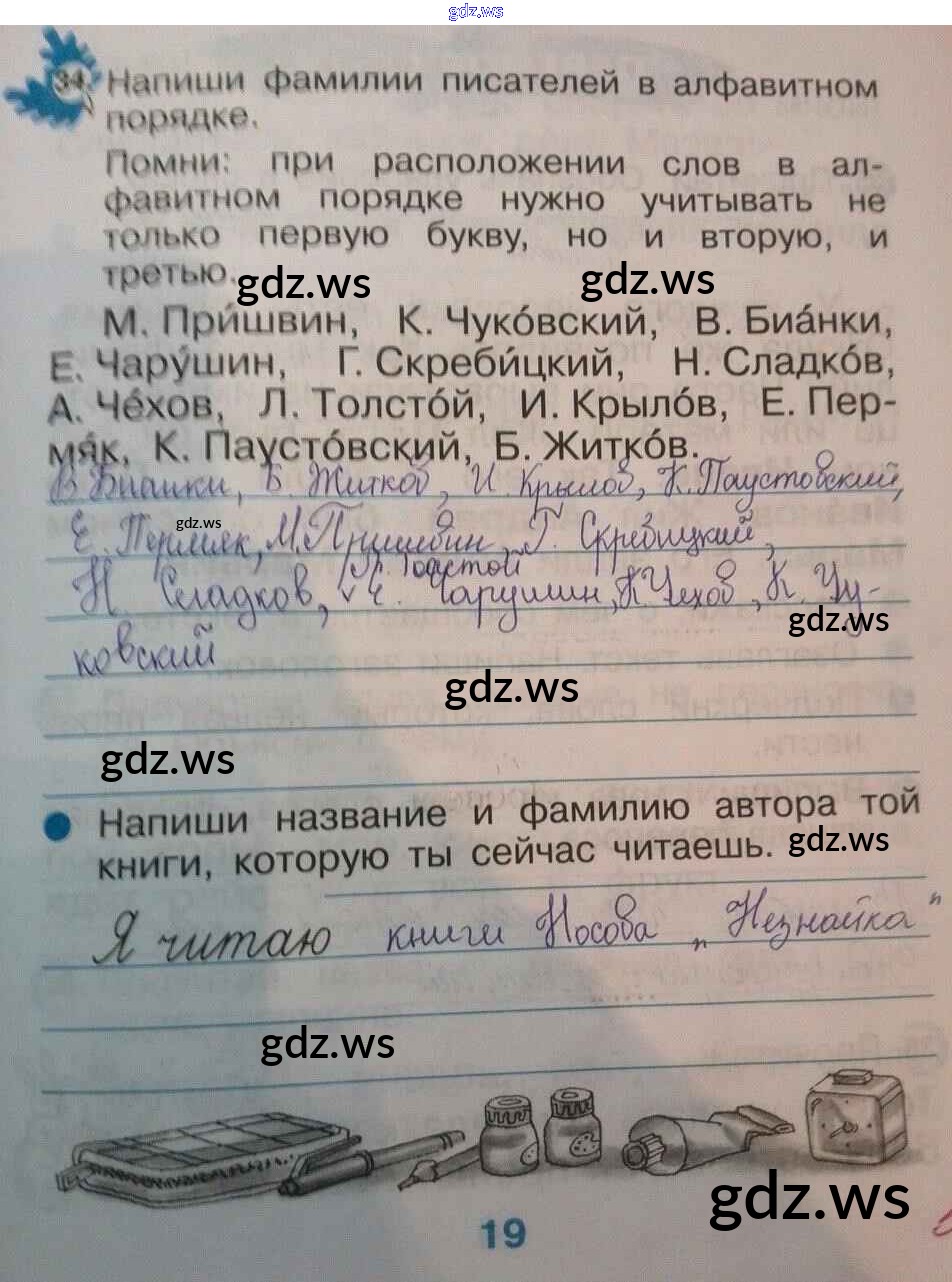 gdz.ws
34 Напиши фамилии писателей в алфавитном
порядке.
Помни: при расположении слов в ал-
фавитном порядке нужно учитывать не
только первую букву, но и вторую, и
третью.
gdz.ws gdz.ws
М. При́швин, К. Чуко́вский, В. Биа́нки,
Е. Чару́шин, Г. Скреби́цкий, Н. Сладко́в,
А. Че́хов, Л. Толсто́й, И. Крыло́в, Е. Пер-
мя́к, К. Паусто́вский, Б. Житко́в.
В. Бианки, Б. Житков, И. Крылов, К. Паустовский,
gdz.ws
Е. Пермяк, М. Пришвин, Г. Скребицкий,
Толстой
Н. Сладков, Чарушин, К. Чехов, К. Чу-
gdz.ws
ковский
gdz.ws
gdz.ws
Напиши название и фамилию автора той
книги, которую ты сейчас читаешь.
gdz.ws
Я читаю книги Носова „Незнайка"
gdz.ws
gdz.ws
19